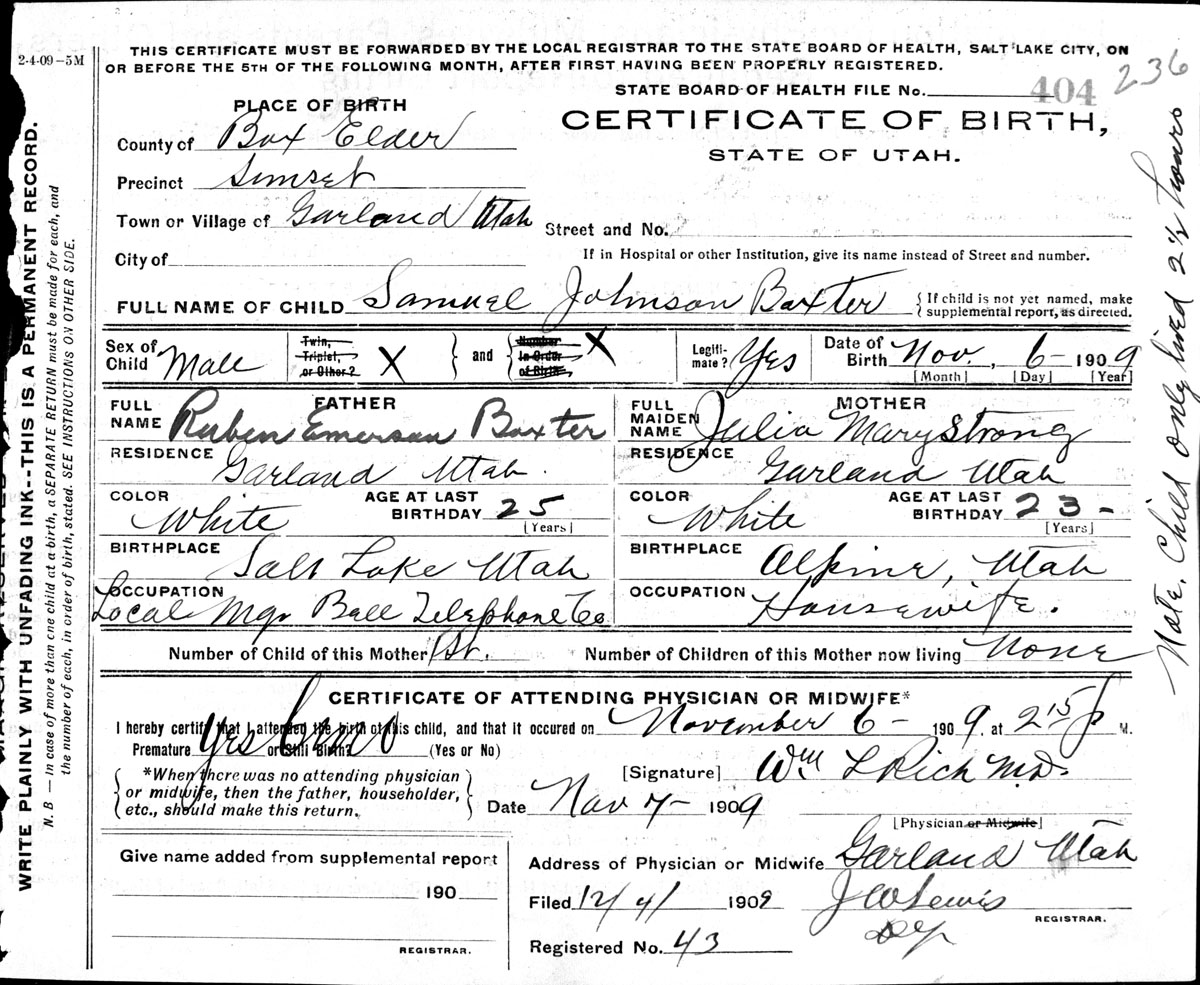 2-4-09-5M
THIS CERTIFICATE MUST BE FORWARDED BY THE LOCAL REGISTRAR TO THE STATE BOARD OF HEALTH, SALT LAKE CITY, ON
OR BEFORE THE 5TH OF THE FOLLOWING MONTH, AFTER FIRST HAVING BEEN PROPERLY REGISTERED.
STATE BOARD OF HEALTH FILE No. 404 236
PLACE OF BIRTH
CERTIFICATE OF BIRTH,
STATE OF UTAH.
County of Box Elder
Precinct Sunset
Town or Village of Garland Utah
Street and No.
City of
If in Hospital or other Institution, give its name instead of Street and number.
FULL NAME OF CHILD Samuel Johnson Baxter { If child is not yet named, make
supplemental report, as directed.
Sex of Child Male Twin, Triplet, or Other? X } and { Number In Order of Birth X Legiti-mate? Yes Date of Birth Nov, 6- 1909
[Month] [Day] [Year]
FATHER
FULL NAME Ruben Emerson Baxter
RESIDENCE Garland Utah.
COLOR White AGE AT LAST BIRTHDAY 25
[Years]
BIRTHPLACE Salt Lake Utah
OCCUPATION Local Mgr Bell Telephone Co
MOTHER
FULL MAIDEN NAME Julia Mary Strong
RESIDENCE Garland Utah
COLOR White AGE AT LAST BIRTHDAY 23-
[Years]
BIRTHPLACE Alpine, Utah
OCCUPATION Housewife.
Number of Child of this Mother 1st. Number of Children of this Mother now living None
CERTIFICATE OF ATTENDING PHYSICIAN OR MIDWIFE*
I hereby certify that I attended the birth of this child, and that it occured on November 6- 1909, at 2 15 P M.
Premature yes or Still Birth? no (Yes or No)
{ *When there was no attending physician
or midwife, then the father, householder,
etc., should make this return. }
[Signature] Wm L Rich MD.
Date Nov 7- 1909
[Physician or Midwife]
Give name added from supplemental report
190
REGISTRAR.
Address of Physician or Midwife Garland Utah
Filed 12/4/ 1909 J W Lewis
REGISTRAR.
Dep
Registered No. 43
WRITE PLAINLY WITH UNFADING INK--THIS IS A PERMANENT RECORD.
N. B — In case of more than one child at a birth, a SEPARATE RETURN must be made for each, and
the number of each, in order of birth, stated. SEE INSTRUCTIONS ON OTHER SIDE.
Note, Child only lived 2½ hours